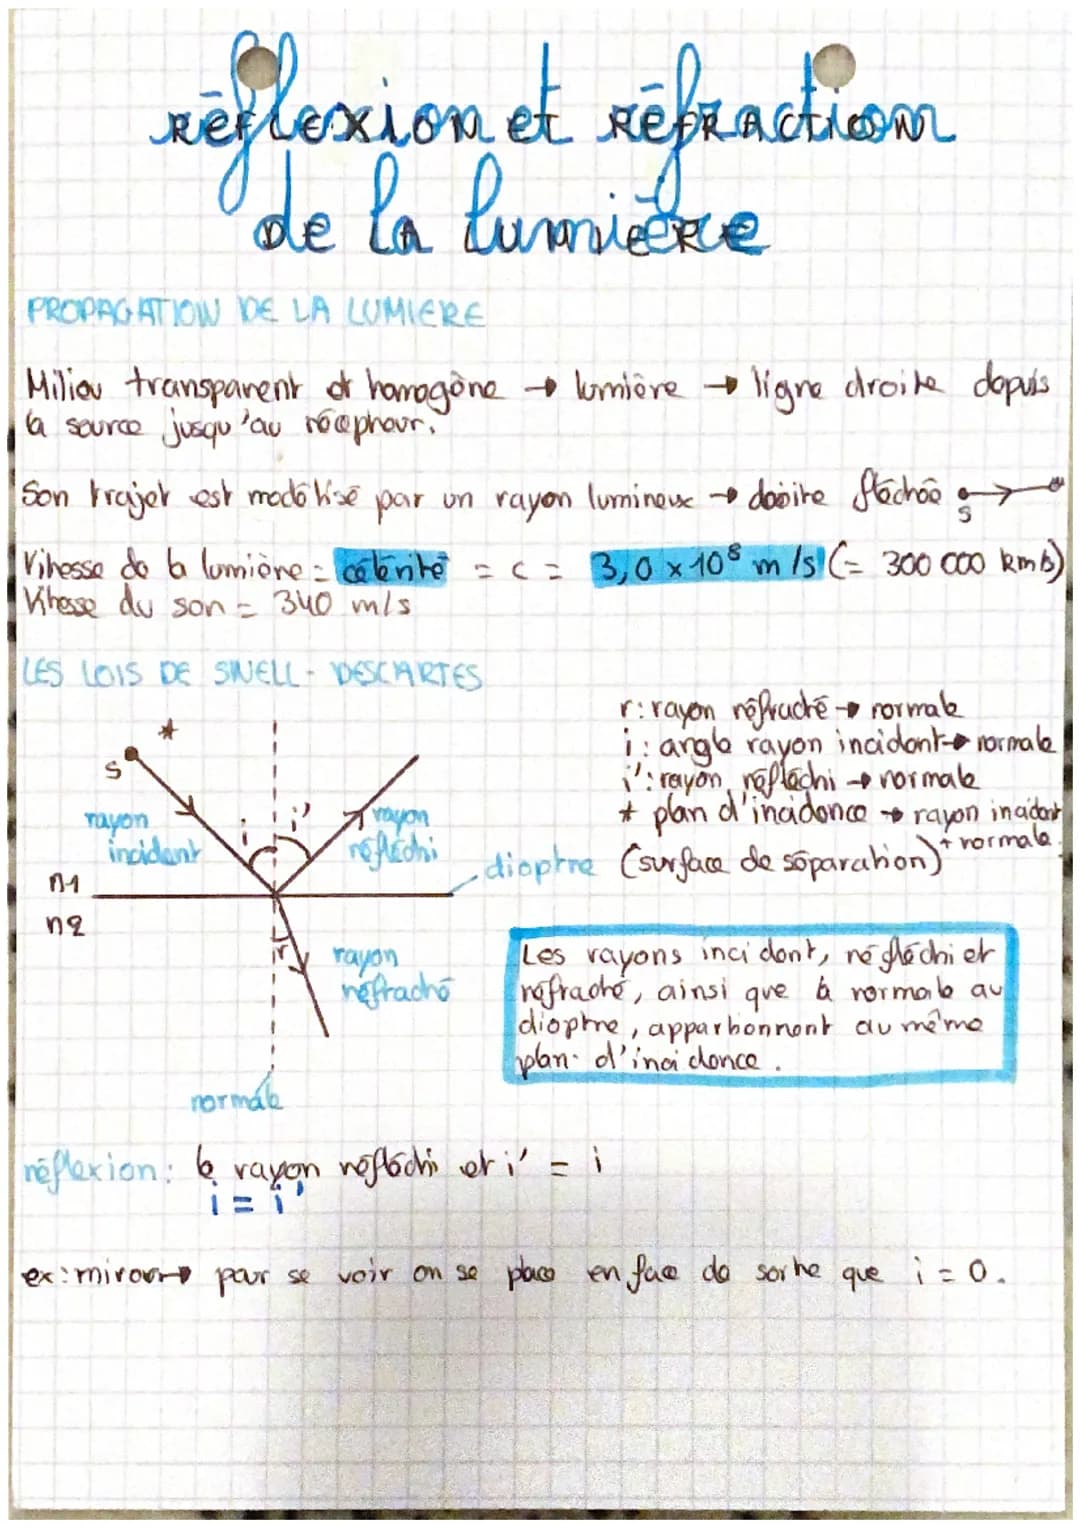 réflexion et réfraction
de la lumière
PROPAGATION DE LA LUMIERE
Milieu transparent et homogène → lumière → ligne droite depuis
la source jusqu'au récepteur.
Son trajet est modélisé par un rayon lumineux → droite fléchée
S
Vitesse de la lumière = célérité = c = 3,0 × 10⁸ m/s (= 300 000 km/s)
Vitesse du son = 340 m/s
LES LOIS DE SNELL-DESCARTES
r : rayon réfracté → normale
i : angle rayon incident → normale
i' : rayon réfléchi → normale
* plan d'incidence → rayon incident
+ normale.
*
S
rayon
incident
i
i'
rayon
réfléchi
dioptre (surface de séparation)
n1
n2
r
rayon
réfracté
normale
Les rayons incident, réfléchi et
réfracté, ainsi que la normale au
dioptre, appartiennent au même
plan d'incidence.
réflexion : le rayon réfléchi et i' = i
i = i'
ex : miroir → pour se voir on se place en face de sorte que i = 0.